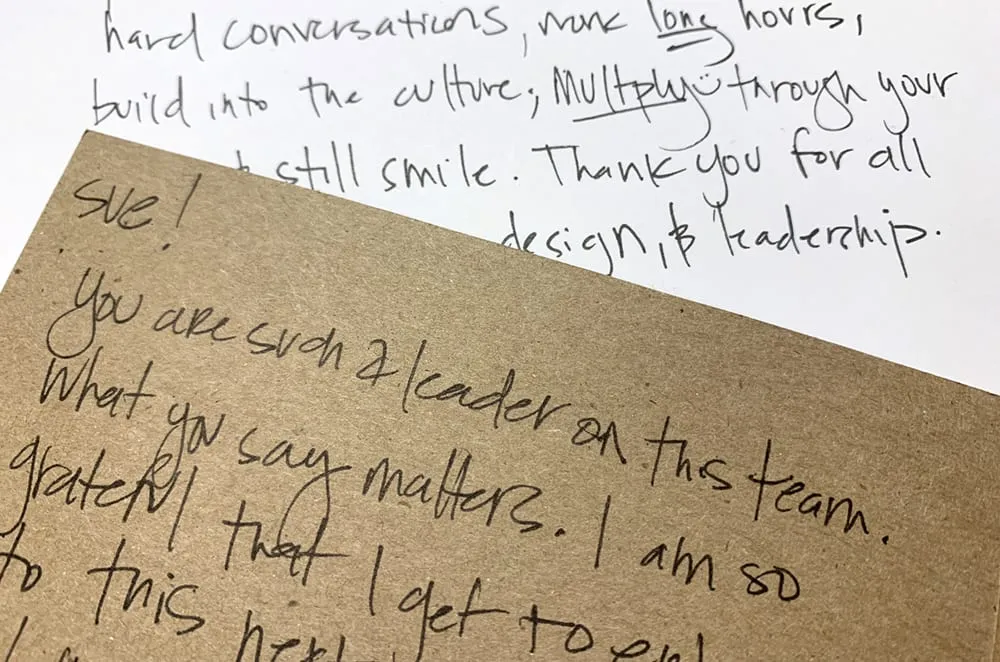 hard conversations, work long hours,
build into the culture, Multply through your
still smile. Thank you for all
design, & leadership.
Sue!
You are such a leader on this team.
What you say matters. I am so
grateful that I get to
to this